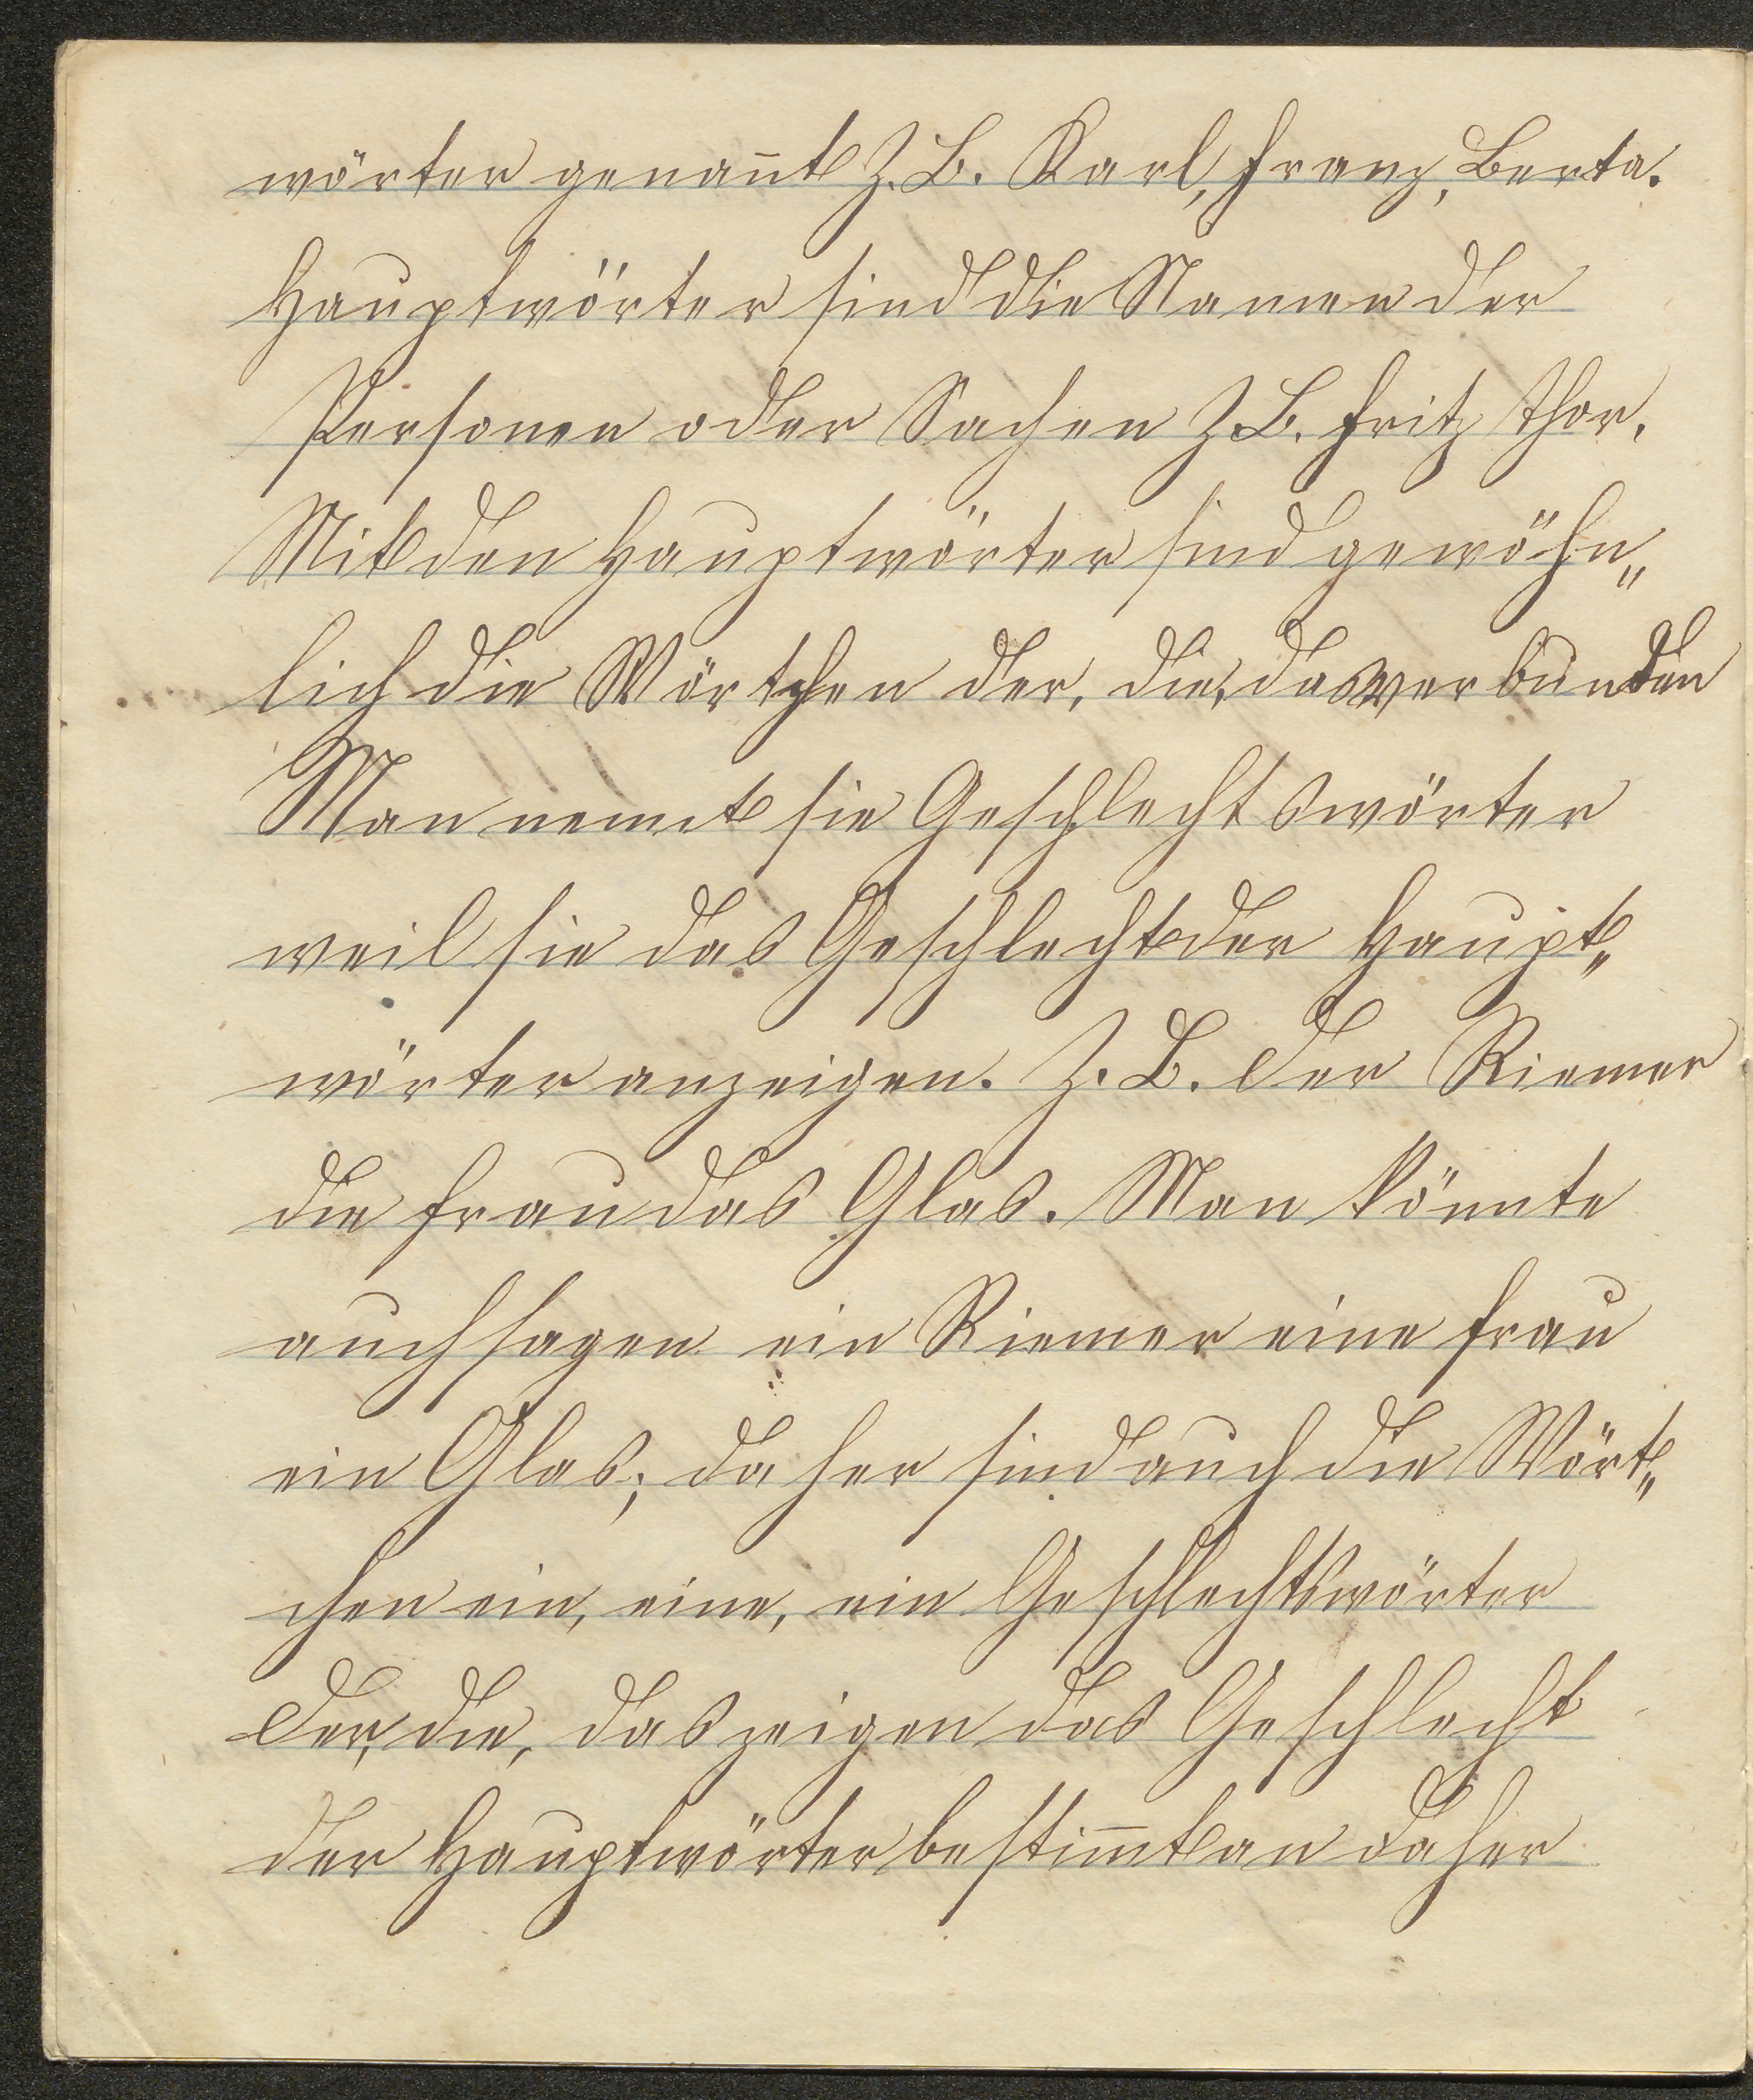 wörter genan̄t Z. B. Karl, Franz, Berta.
Hauptwörter sind die Namen der
Personen oder Sachen Z. B. Fritz Thor.
Mit den Hauptwörter sind gewöhn„
lich die Wörtchen der, die, das verbunden
Man nennt sie Geschlechtswörter
weil sie das Geschlecht der Haupt„
wörter anzeigen. Z. B. der Riemer
die Frau das Glas. Man könnte
auch sagen ein Riemer eine Frau
ein Glas; daher sind auch die Wört„
chen ein, eine, ein Geschlechtswörter
Der, die, das zeigen das Geschlecht
der Hauptwörter bestim̄t an daher